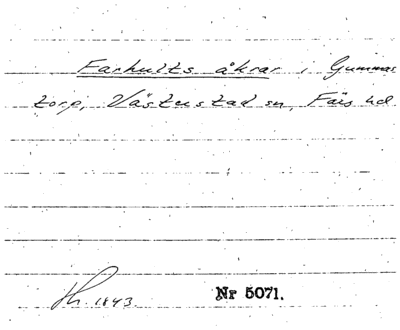 Farhults åkrar i Gummas
torp, Västerstad sn, Färs hd
Th. 1843.
Nr 5071.